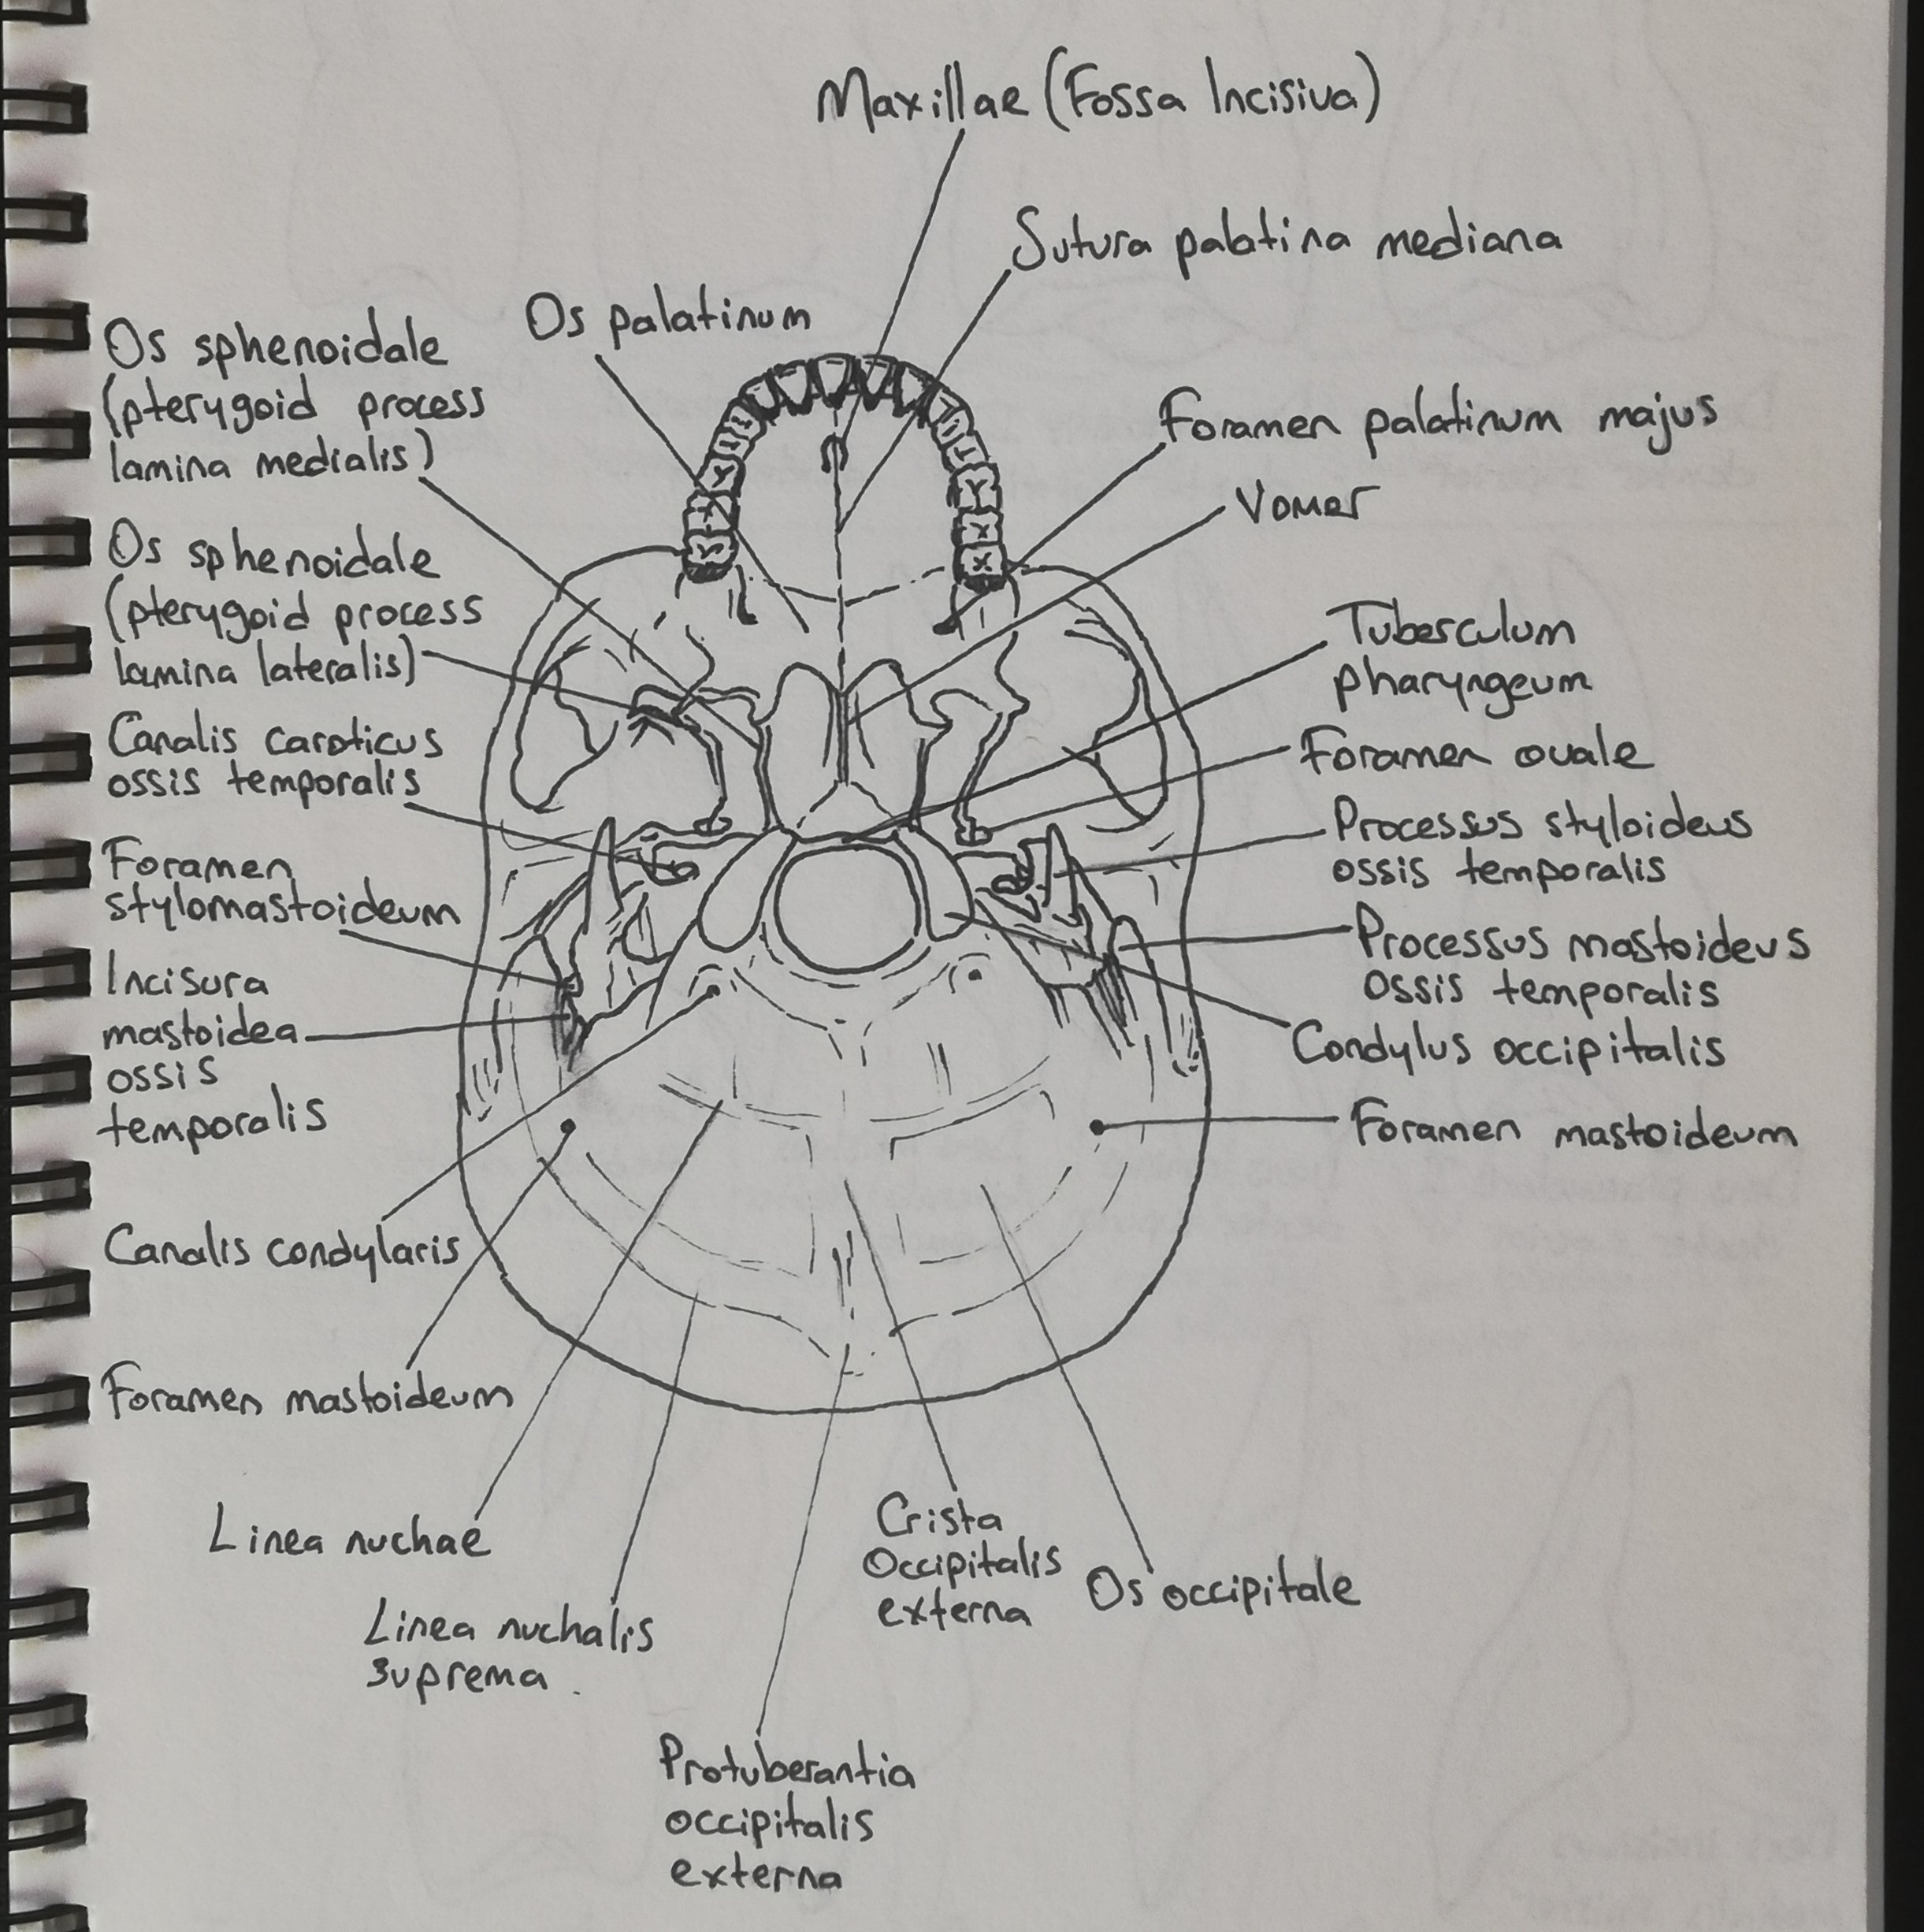 Maxillae (Fossa Incisiva)
Sutura palatina mediana
Os palatinum
Os sphenoidale
(pterygoid process
lamina medialis)
Foramen palatinum majus
Vomer
Os sphenoidale
(pterygoid process
lamina lateralis)
Tuberculum
pharyngeum
Canalis caroticus
ossis temporalis
Foramen ovale
Processus styloideus
ossis temporalis
Foramen
stylomastoideum
Processus mastoideus
ossis temporalis
Incisura
mastoidea
ossis
temporalis
Condylus occipitalis
Foramen mastoideum
Canalis condylaris
Foramen mastoideum
Linea nuchae
Crista
Occipitalis
externa
Os occipitale
Linea nuchalis
suprema
Protuberantia
occipitalis
externa